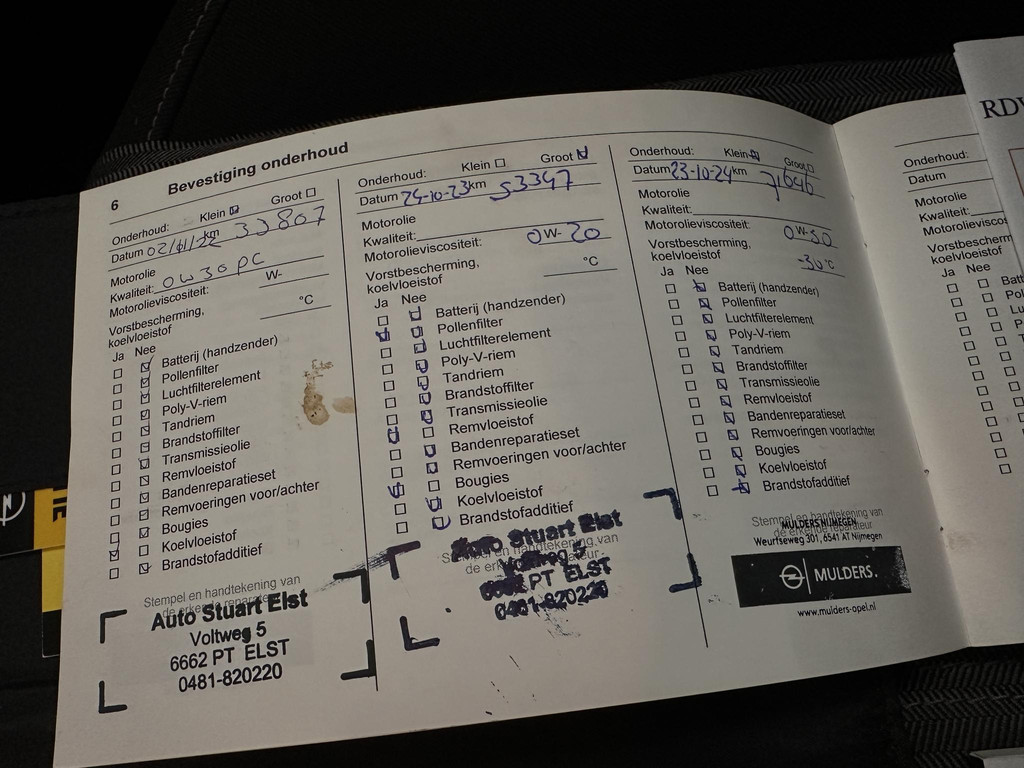 Bevestiging onderhoud
6
Onderhoud: Klein Groot
Datum 02/11/22 km 33807
Motorolie
Kwaliteit: 0W30 PC
Motorolieviscositeit: W-
Vorstbescherming, °C
koelvloeistof
Ja Nee
Batterij (handzender)
Pollenfilter
Luchtfilterelement
Poly-V-riem
Tandriem
Brandstoffilter
Transmissieolie
Remvloeistof
Bandenreparatieset
Remvoeringen voor/achter
Bougies
Koelvloeistof
Brandstofadditief
Stempel en handtekening van
de erkende reparateur
Auto Stuart Elst
Voltweg 5
6662 PT ELST
0481-820220
Onderhoud: Klein Groot
Datum 24-10-23 km 53347
Motorolie
Kwaliteit:
Motorolieviscositeit: 0W-20
Vorstbescherming, °C
koelvloeistof
Ja Nee
Batterij (handzender)
Pollenfilter
Luchtfilterelement
Poly-V-riem
Tandriem
Brandstoffilter
Transmissieolie
Remvloeistof
Bandenreparatieset
Remvoeringen voor/achter
Bougies
Koelvloeistof
Brandstofadditief
Stempel en handtekening van
de erkende reparateur
Auto Stuart Elst
Voltweg 5
6662 PT ELST
0481-820220
Onderhoud: Klein Groot
Datum 23-10-24 km 71646
Motorolie
Kwaliteit:
Motorolieviscositeit: 0W-30
Vorstbescherming,
koelvloeistof -30°C
Ja Nee
Batterij (handzender)
Pollenfilter
Luchtfilterelement
Poly-V-riem
Tandriem
Brandstoffilter
Transmissieolie
Remvloeistof
Bandenreparatieset
Remvoeringen voor/achter
Bougies
Koelvloeistof
Brandstofadditief
Stempel en handtekening van
de erkende reparateur
MULDERS NIJMEGEN
Weurtseweg 301, 6541 AT Nijmegen
MULDERS.
www.mulders-opel.nl
Onderhoud:
Datum
Motorolie
Kwaliteit:
Motorolieviscos
Vorstbescherm
koelvloeistof
Ja Nee
Batt
Po
Lu
RDW